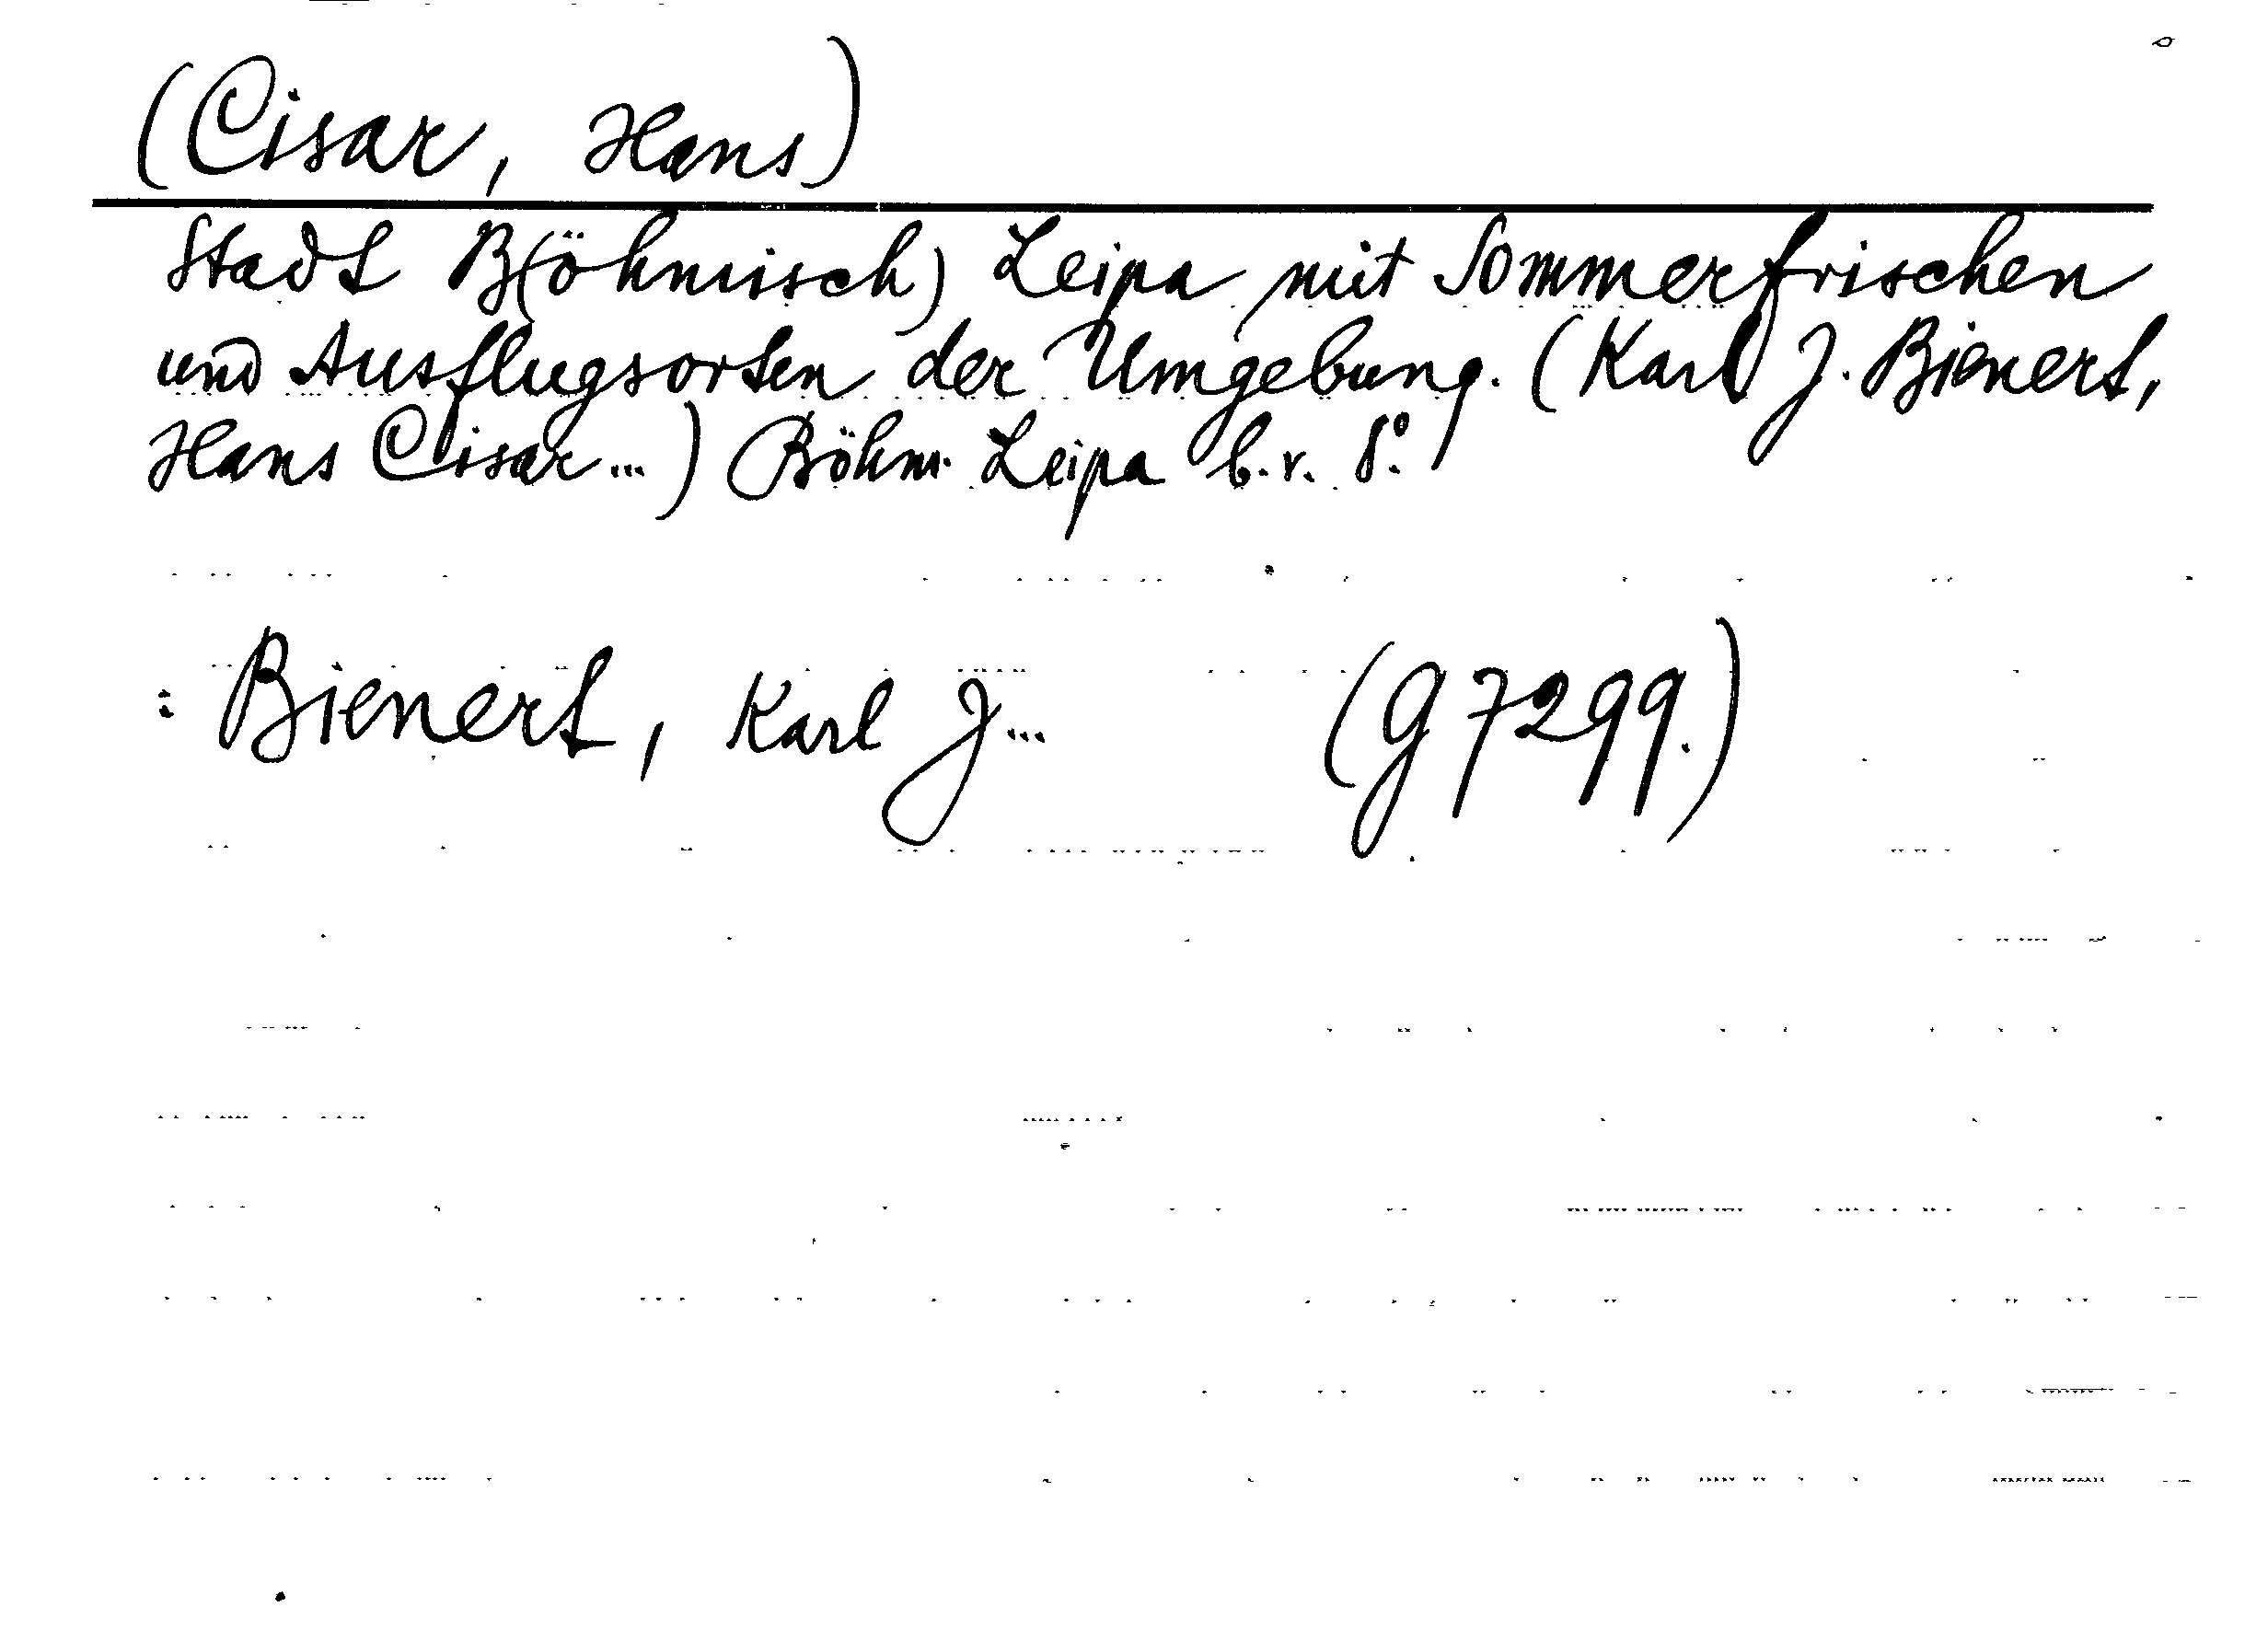 (Cisar, Hans)
Stadt B(öhmisch) Leipa mit Sommerfrischen
und Ausflugsorten der Umgebung. (Karl J. Bienert,
Hans Cisar...) Böhm. Leipa b.r. 8°.
: Bienert, Karl J... (G 7299.)